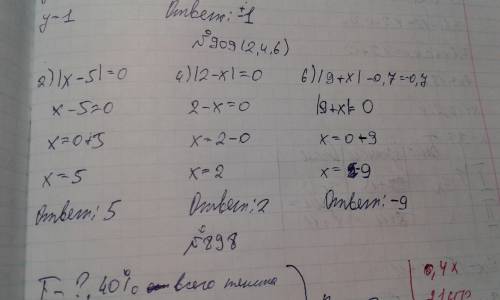 y=1
Ответ: ±1
№909(2,4,6)
2) |x-5|=0
4) |2-x|=0
6) |9+x|-0,7=-0,7
x-5=0
2-x=0
|9+x|=0
x=0+5
x=2-0
x=0+9
x=5
x=2
x=-9
Ответ: 5
Ответ: 2
Ответ: -9
№898
I - ?, 40% всего
0,4x